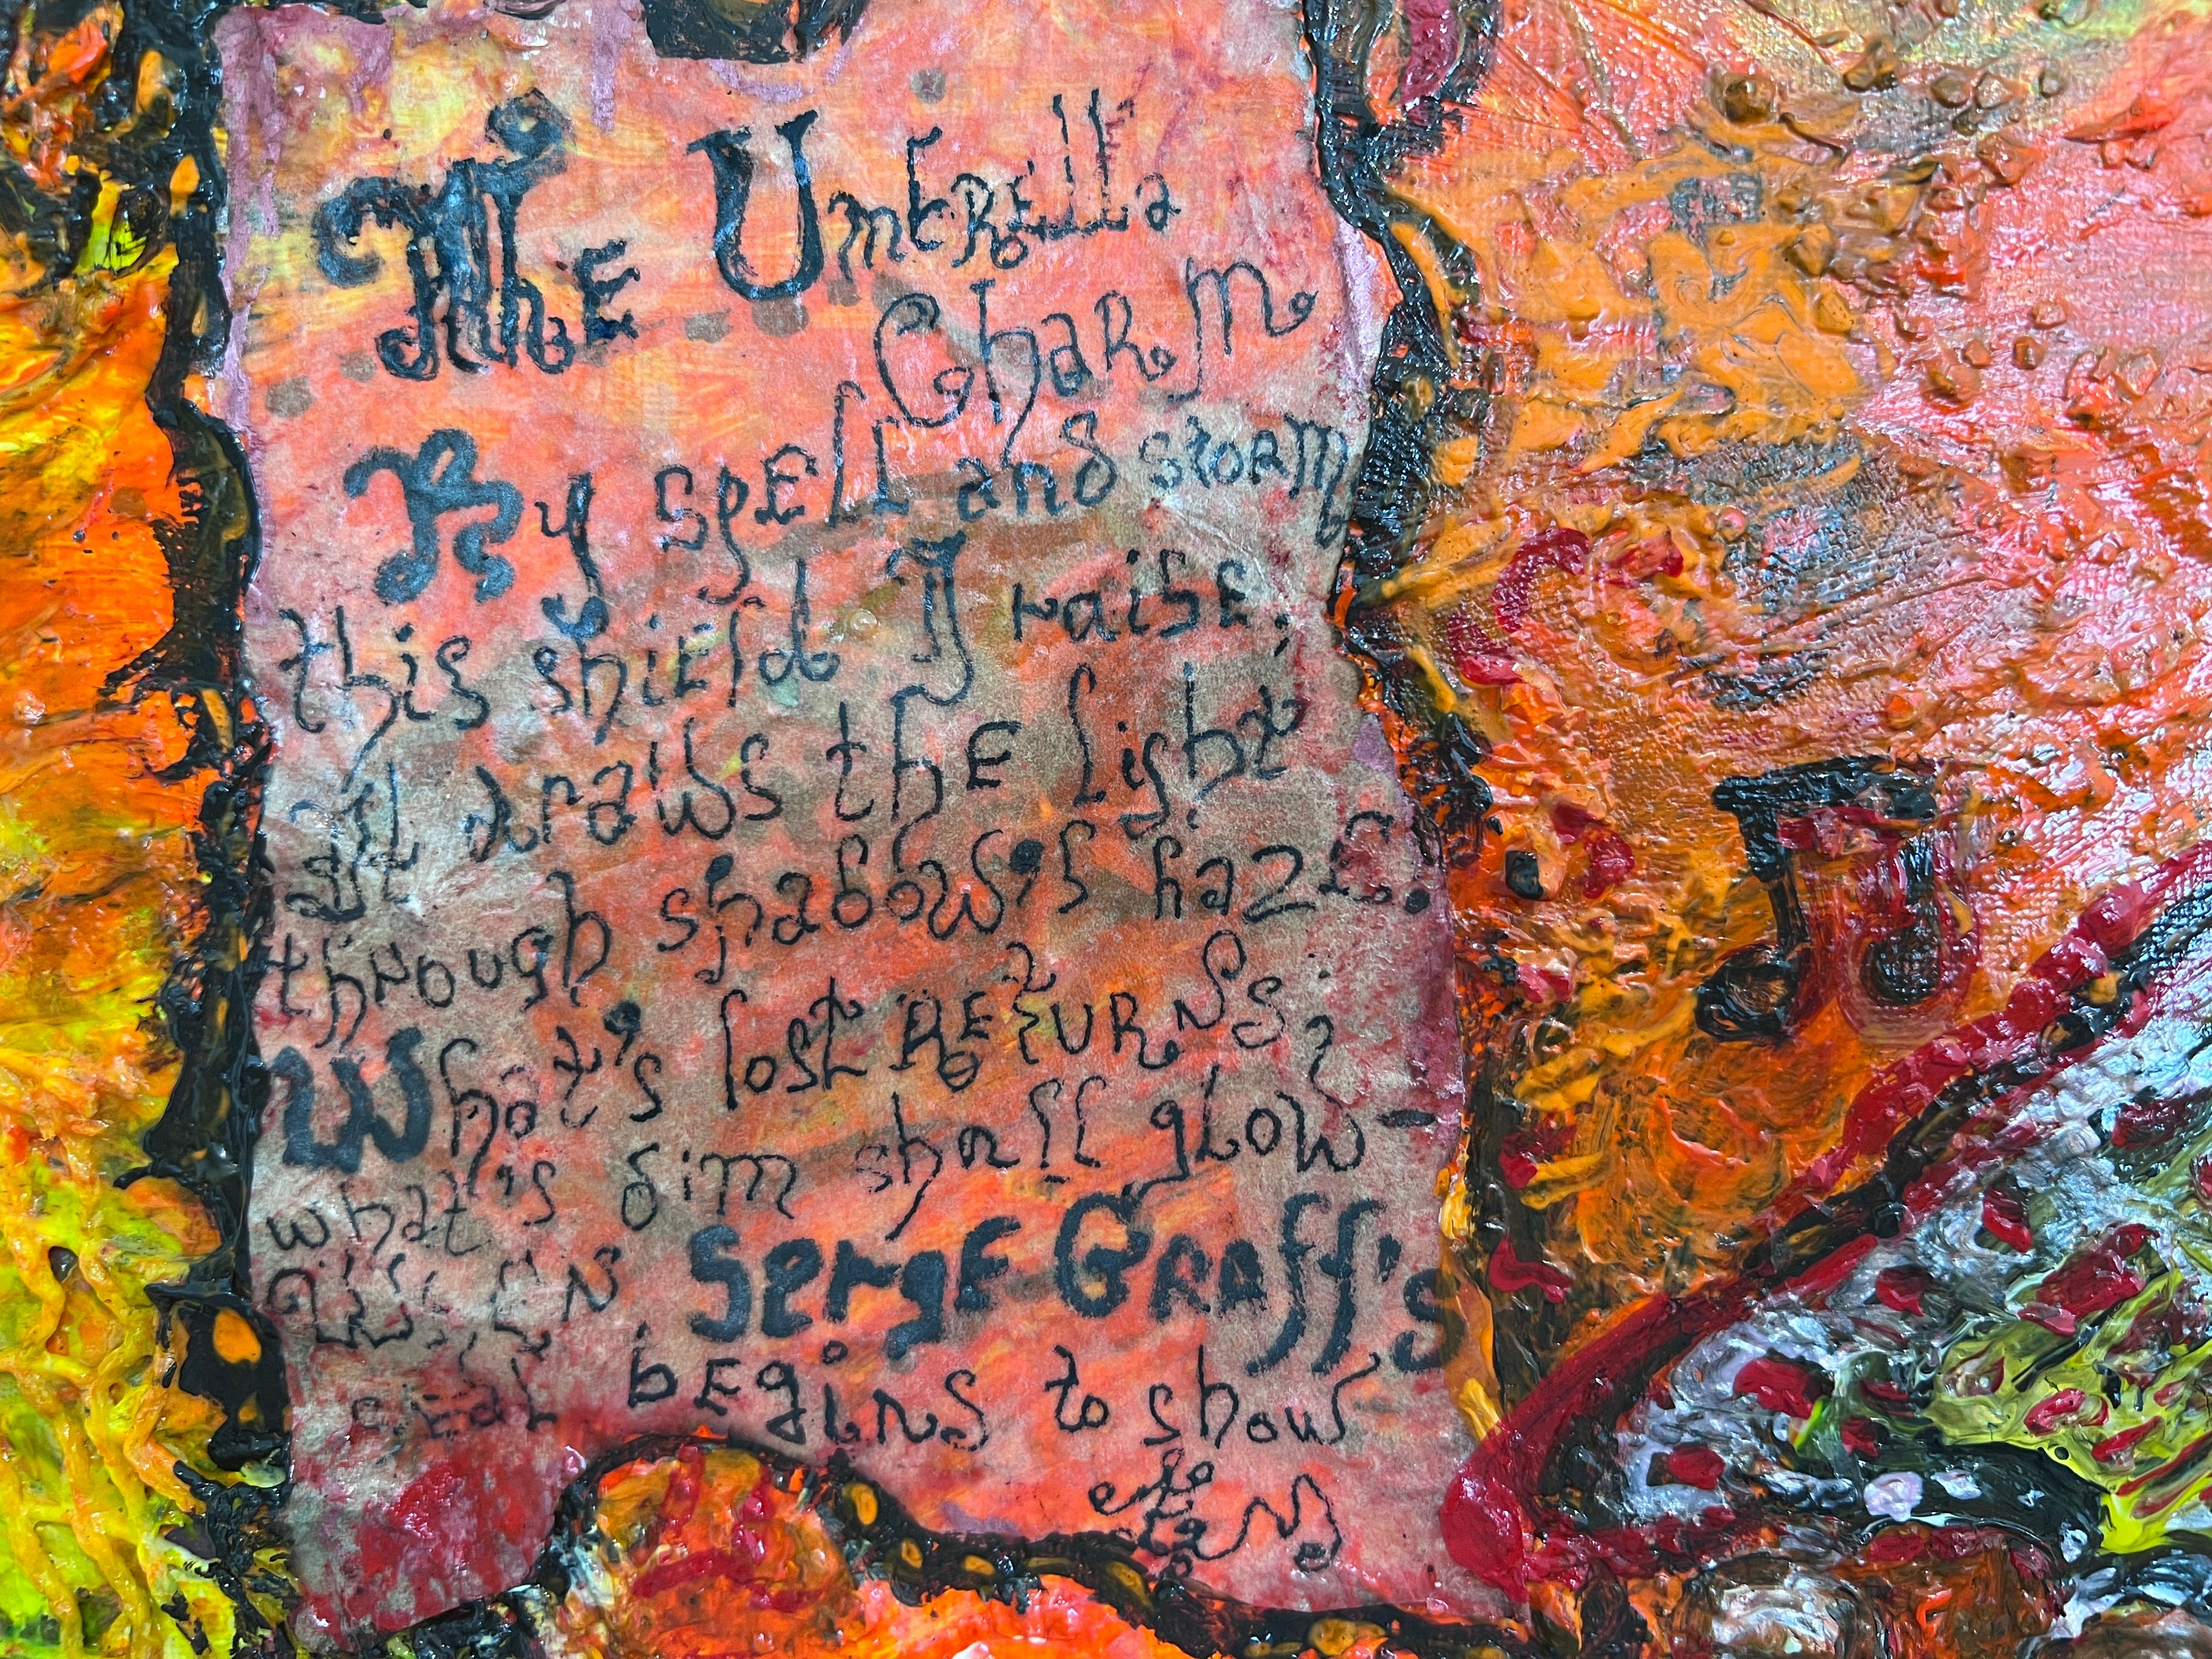 The Umbrella
Charm
By spell and storm
this shield I raise,
It draws the light
through shadow's haze.
What's lost returns,
what's dim shall glow-
Serge Graff's
begins to show